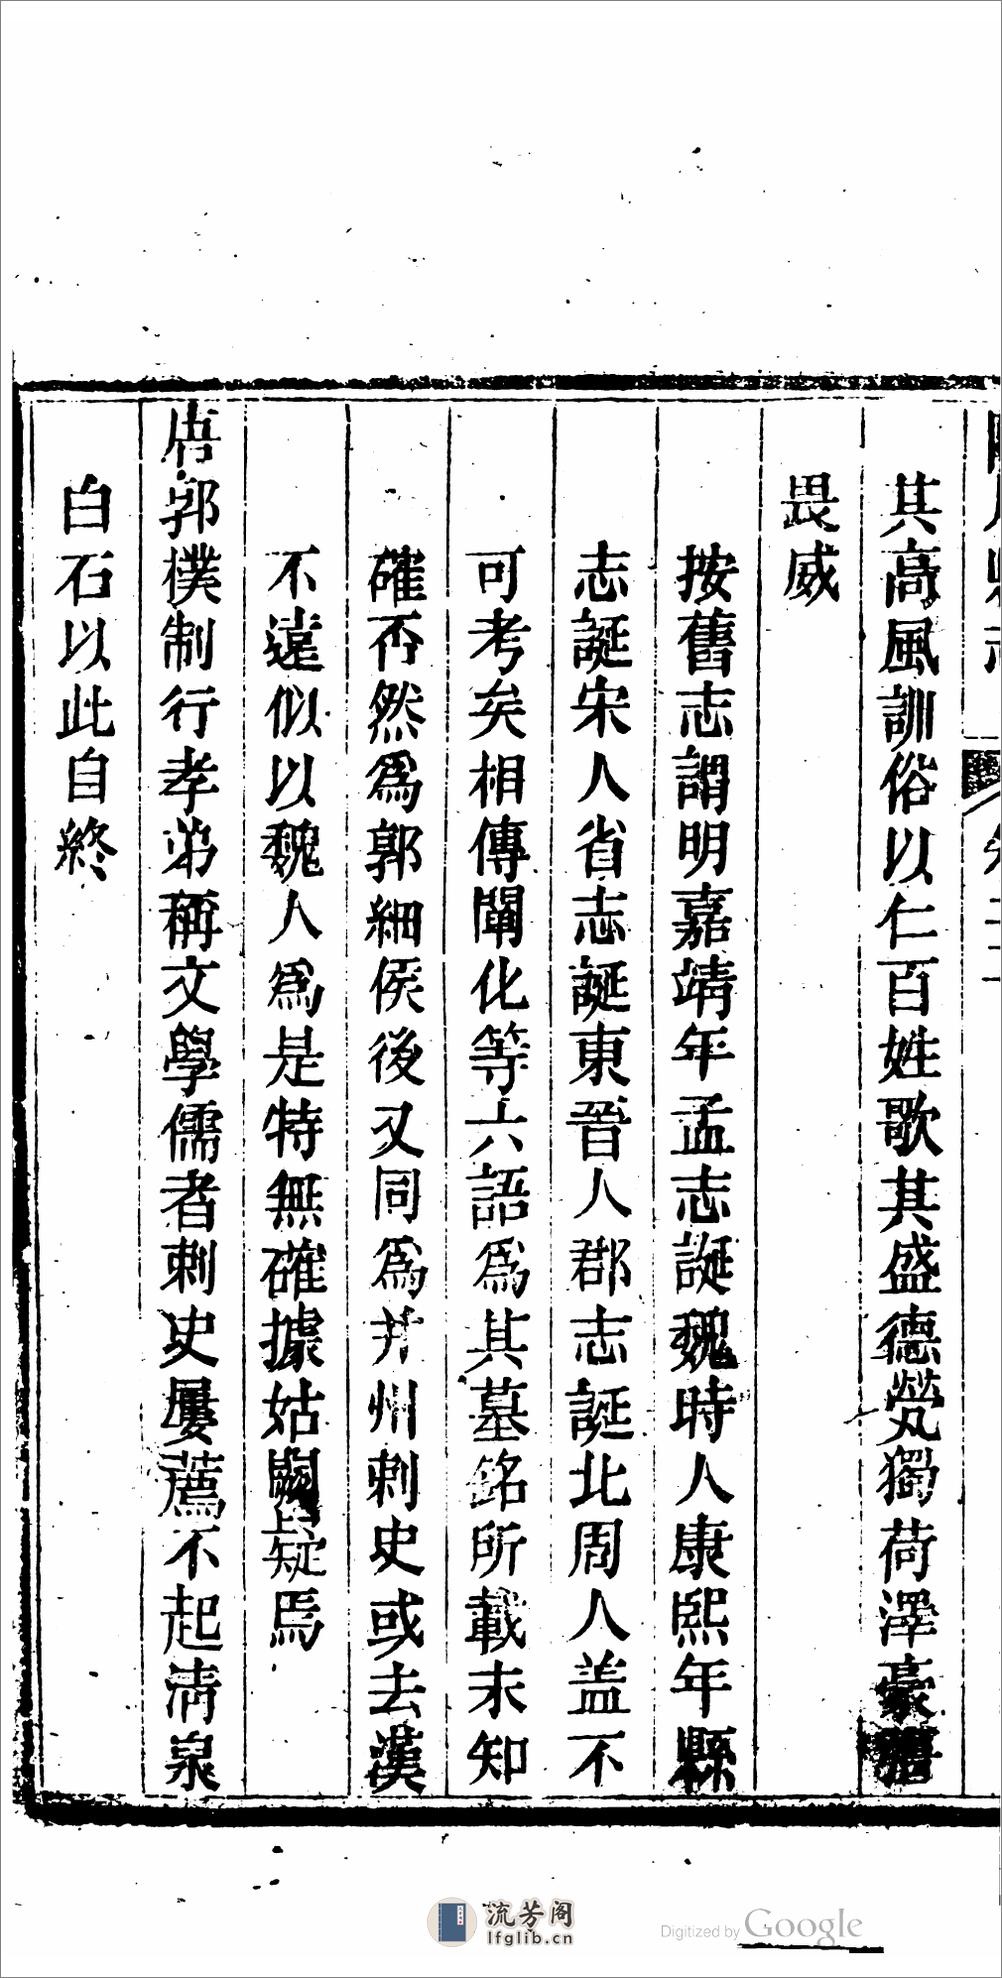 其高風訓俗以仁百姓歌其盛德煢獨荷澤豪猾
畏威
按舊志謂明嘉靖年孟志誕魏時人康熙年縣
志誕宋人省志誕東晉人郡志誕北周人盖不
可考矣相傳闡化等六語爲其墓銘所載未知
確否然爲郭細侯後又同爲并州刺史或去漢
不遠似以魏人爲是特無確據姑闕疑焉
唐郭樸制行孝弟稱文學儒者刺史屢薦不起清泉
白石以此自終
流芳阁
lfglib.cn
Digitized by Google